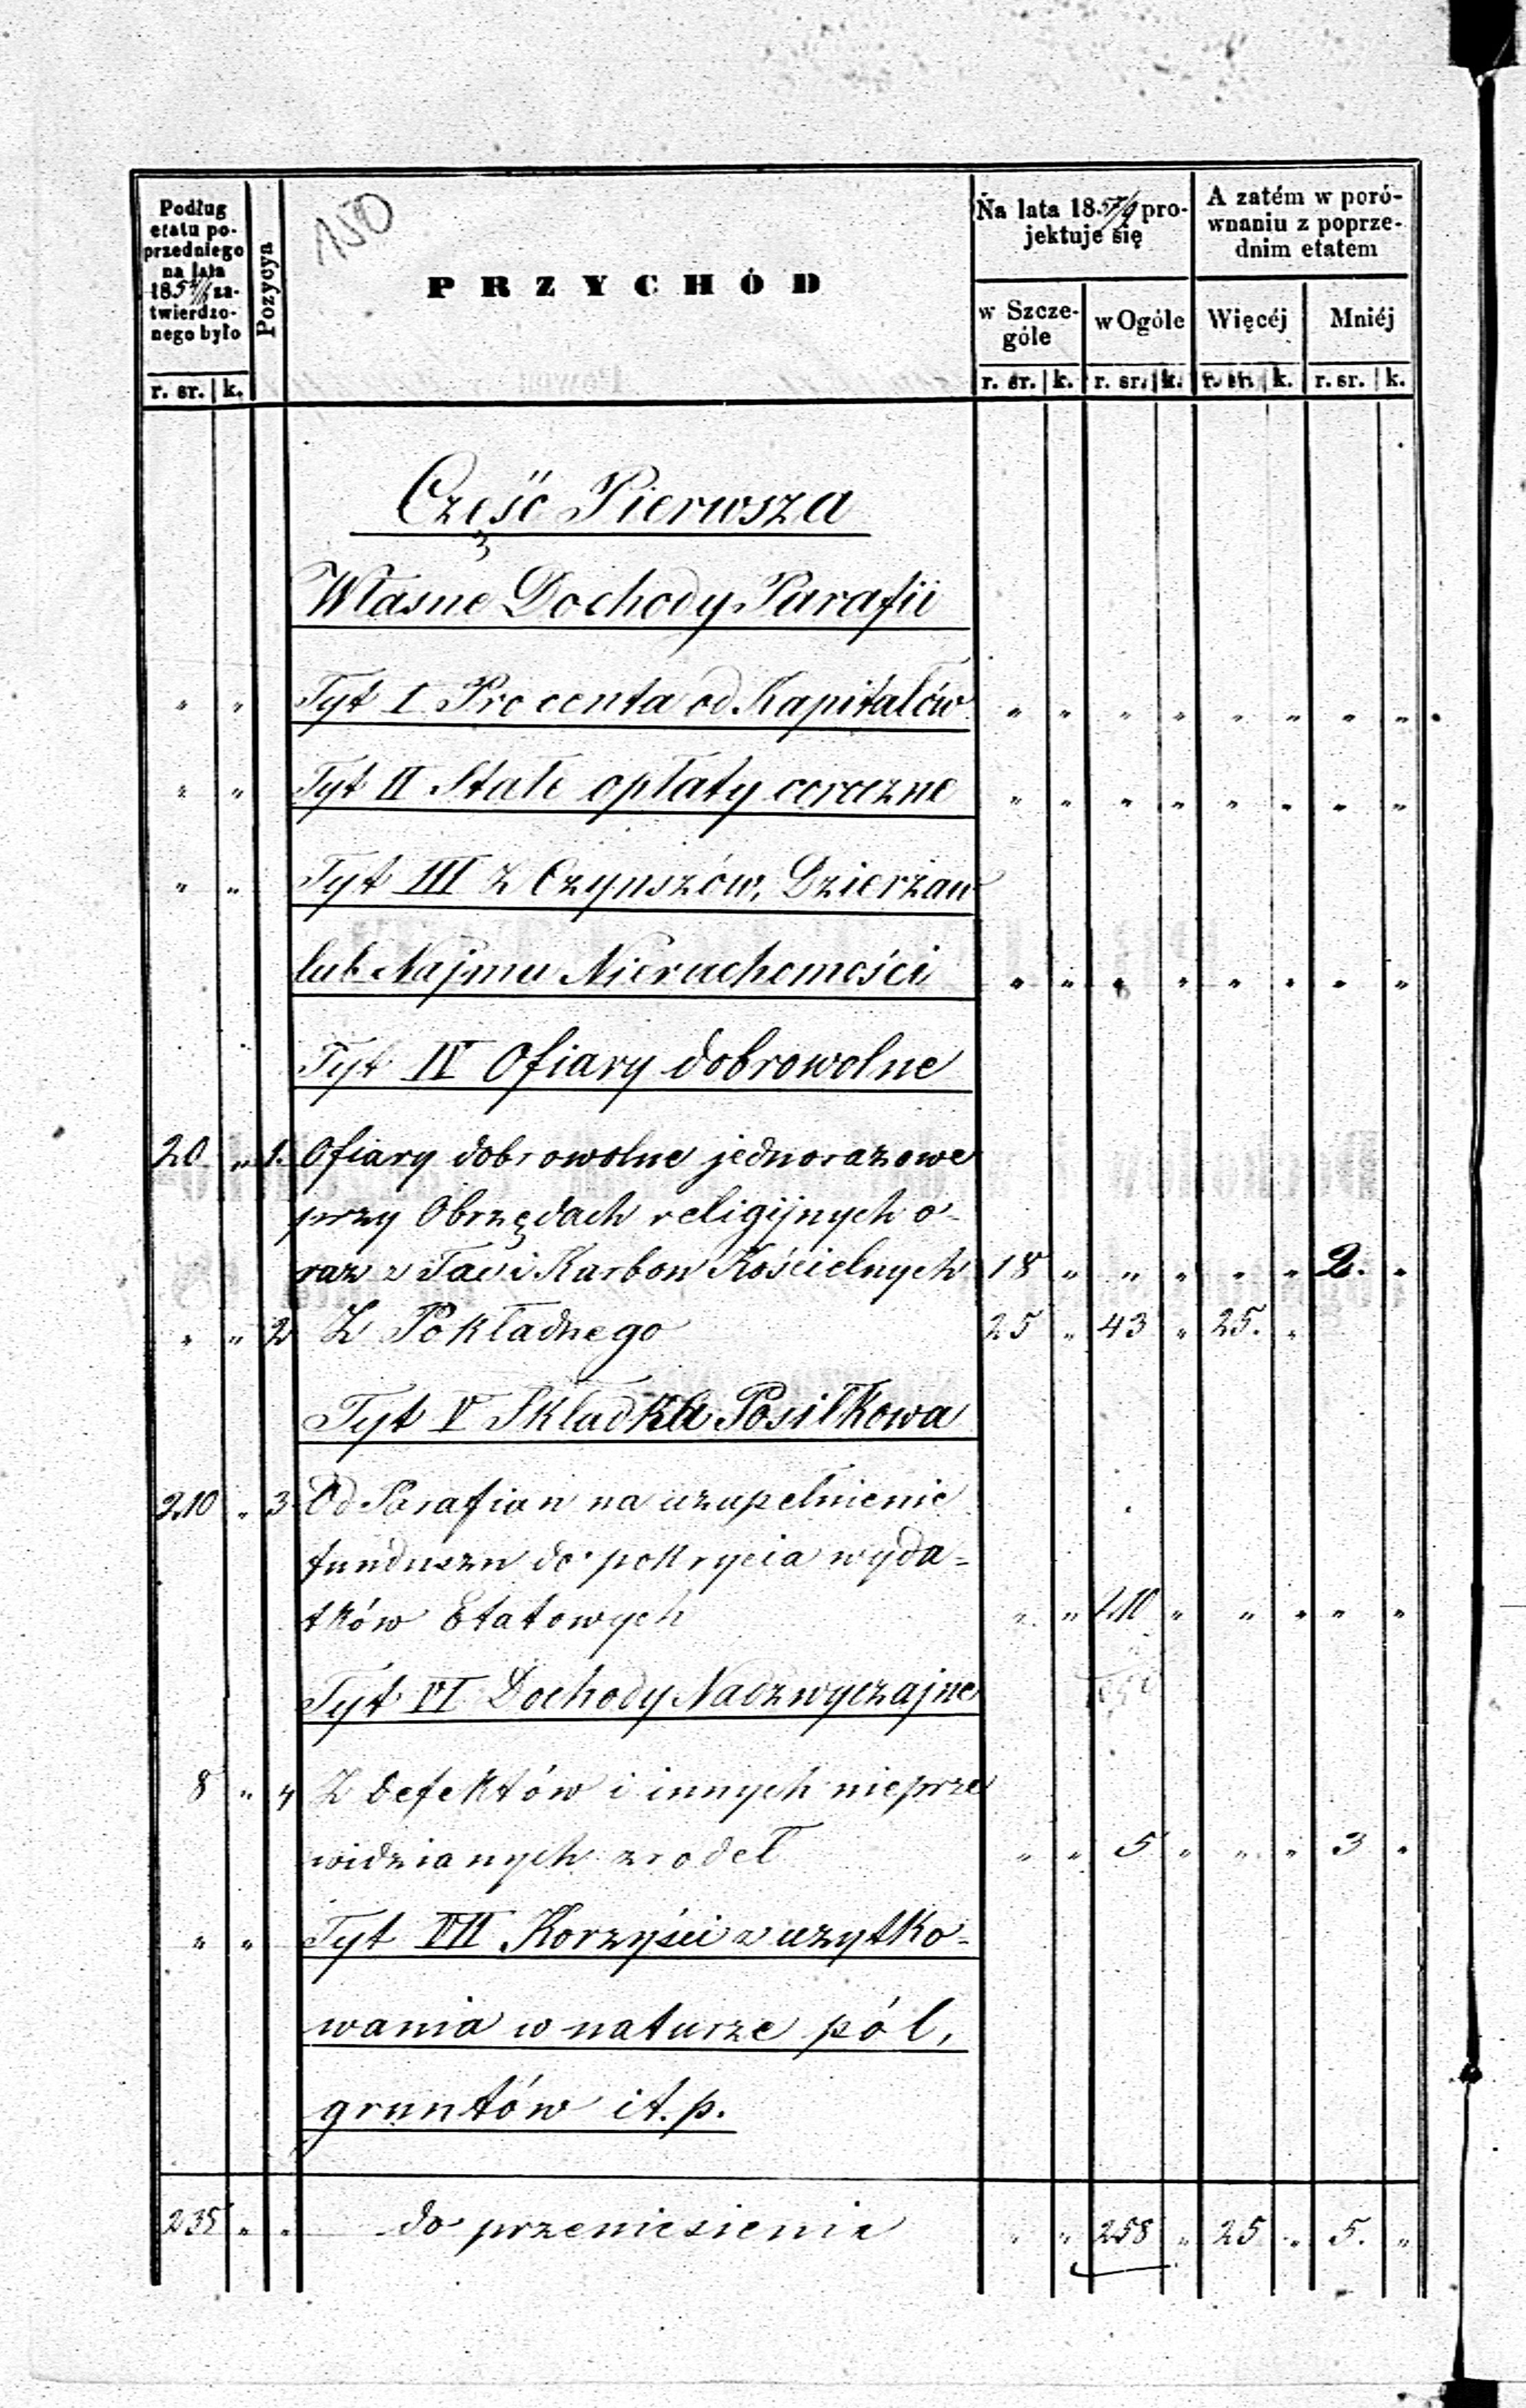 150
Podług etatu po-
przedniego
na lata
185 za-
twierdzo-
nego było
Pozycya
PRZYCHÓD
Na lata 185 /9 pro-
jektuje się
A zatém w poró-
wnaniu z poprze-
dnim etatem
w Szcze-
góle
w Ogóle
Więcéj
Mniéj
r. sr. k. r. sr. k. r. sr. k. r. sr. k. r. sr. k.
Część Pierwsza
Własne Dochody Parafii
" " Tyt I Procenta od Kapitałów " " " " " " " "
" " Tyt II Stałe opłaty coroczne " " " " " " " "
" " Tyt III Z Czynszów, Dzierżaw
lub Najmu Nieruchomości " " " " " " " "
Tyt IV Ofiary dobrowolne
20 " 1. Ofiary dobrowolne jednorazowe
przy Obrzędach religijnych o-
raz z Tac i Karbon Kościelnych 18 " " " " " 2. "
" " 2 Z Pokładnego 25 " 43 " 25. "
Tyt V Składka Posiłkowa
210 " 3 Od Parafian na uzupełnienie
funduszu do pokrycia wyda-
tków Etatowych " " 210 " " " " "
Tyt VI Dochody Nadzwyczajne
8 " 4 Z defektów i innych nieprze
widzianych zrodeł " " 5 " " " 3 "
" " Tyt VII Korzyści z użytko-
wania w naturze pól,
gruntów it.p.
235 " " do przeniesienia " " 258 " 25 " 5. "